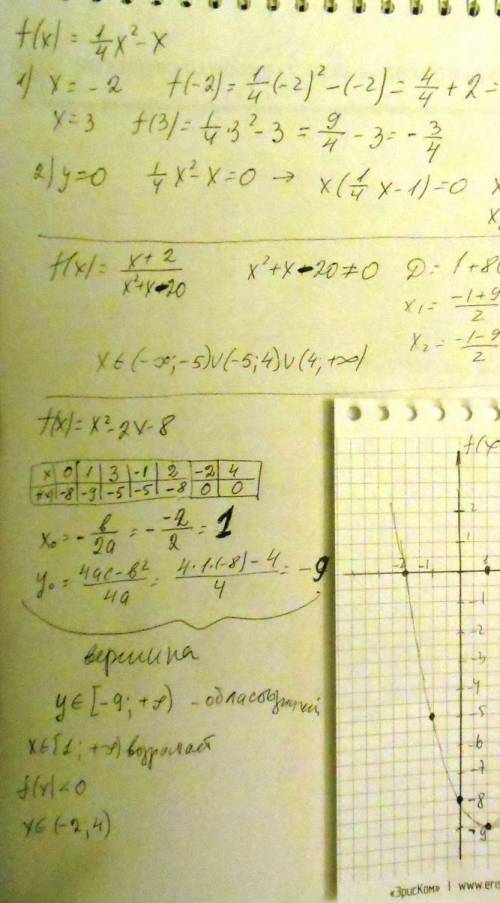 f(x) = 1/4 x² - x
1) x = -2   f(-2) = 1/4 (-2)² - (-2) = 4/4 + 2 =
x = 3   f(3) = 1/4 · 3² - 3 = 9/4 - 3 = -3/4
2) y = 0   1/4 x² - x = 0 → x(1/4 x - 1) = 0   x
x
f(x) = x + 2 / x² + x - 20   x² + x - 20 ≠ 0   D = 1 + 80
x₁ = -1 + 9 / 2
x₂ = -1 - 9 / 2
x ∈ (-∞; -5) ∪ (-5; 4) ∪ (4; +∞)
f(x) = x² - 2x - 8
x 0 1 3 -1 2 -2 4
f(x) -8 -9 -5 -5 -8 0 0
x₀ = - b/2a = - -2/2 = 1
y₀ = 4ac - b² / 4a = 4·1·(-8) - 4 / 4 = -9
вершина
y ∈ [-9; +∞) - область значений
x ∈ [1; +∞) возрастает
f(x) < 0
x ∈ (-2, 4)
f(x
2
1
-2 -1 1
-1
-2
-3
-4
-5
-7
-8
-9
«ЭрисКом» | www.eris